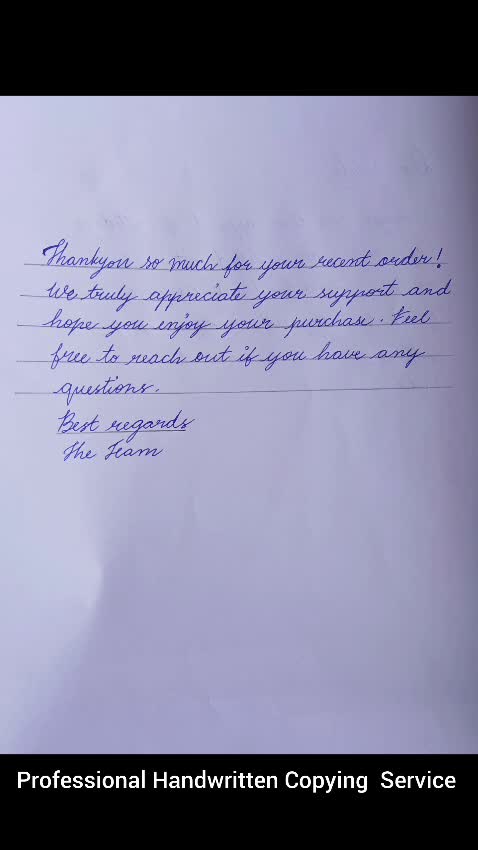 Thankyou so much for your recent order!
We truly appreciate your support and
hope you enjoy your purchase. Feel
free to reach out if you have any
questions.
Best regards
The Team
Professional Handwritten Copying Service